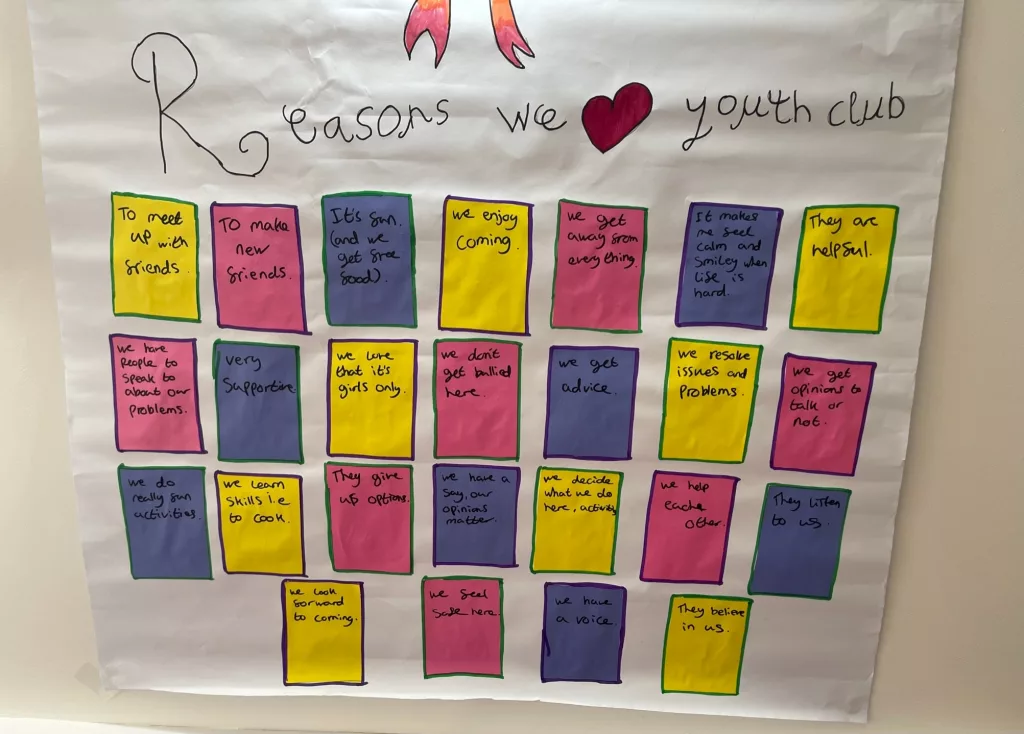 Reasons we youth club
To meet
up with
friends.
To make
new
friends.
It's fun.
(and we
get free
food).
we enjoy
coming.
we get
away from
everything.
It makes
me feel
calm and
smiley when
life is
hard.
They are
helpful.
we have
people to
speak to
about our
problems.
very
supportive
we love
that it's
girls only.
we don't
get bullied
here.
we get
advice.
we resolve
issues and
problems.
we get
opinions to
talk or
not.
we do
really fun
activities.
we learn
skills i.e
to cook.
They give
us options.
we have a
say, our
opinions
matter.
we decide
what we do
here, activity
we help
each
other.
They listen
to us.
we look
forward
to coming.
we feel
safe here.
we have
a voice
They believe
in us.